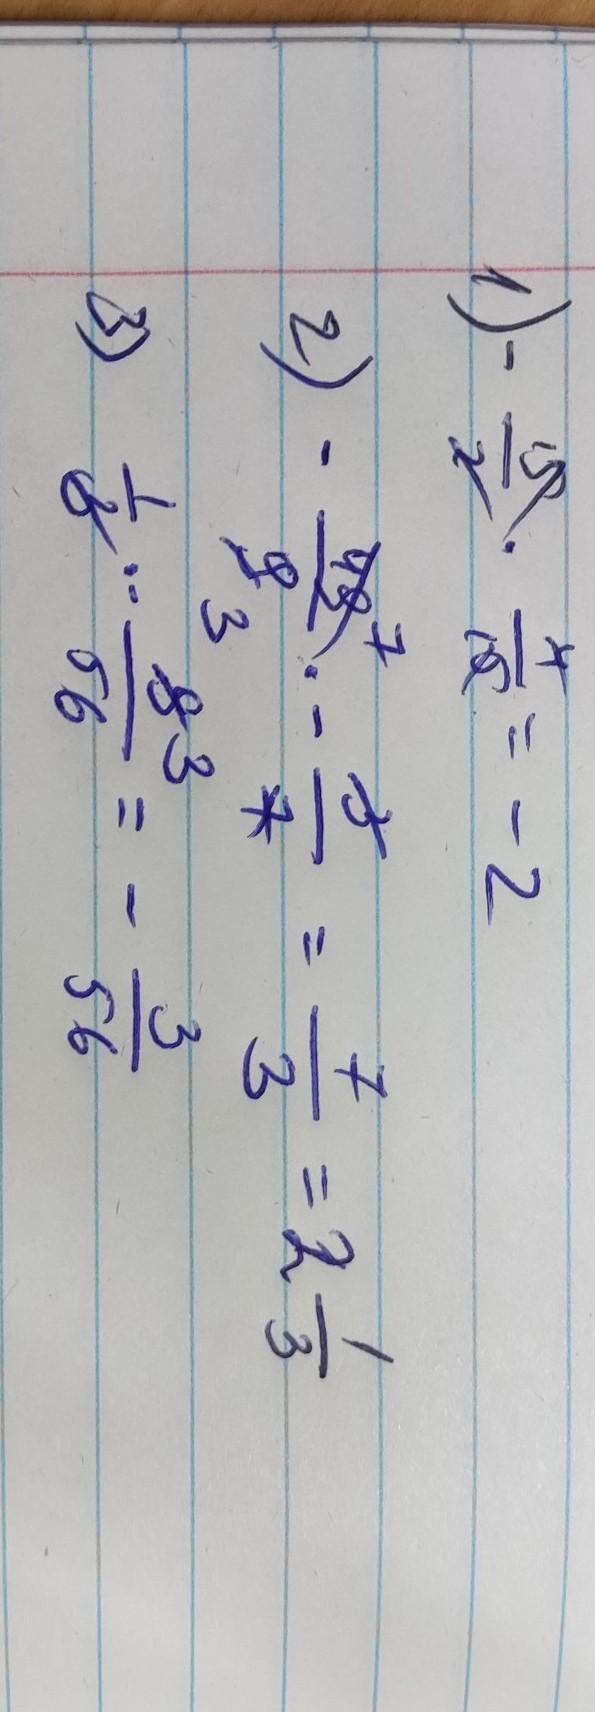 1) - 15/2 · 4/15 = -2
2) - 49/9 7 3 · - 3/7 = 7/3 = 2 1/3
3) 1/6 : 8 3/56 = - 3/56